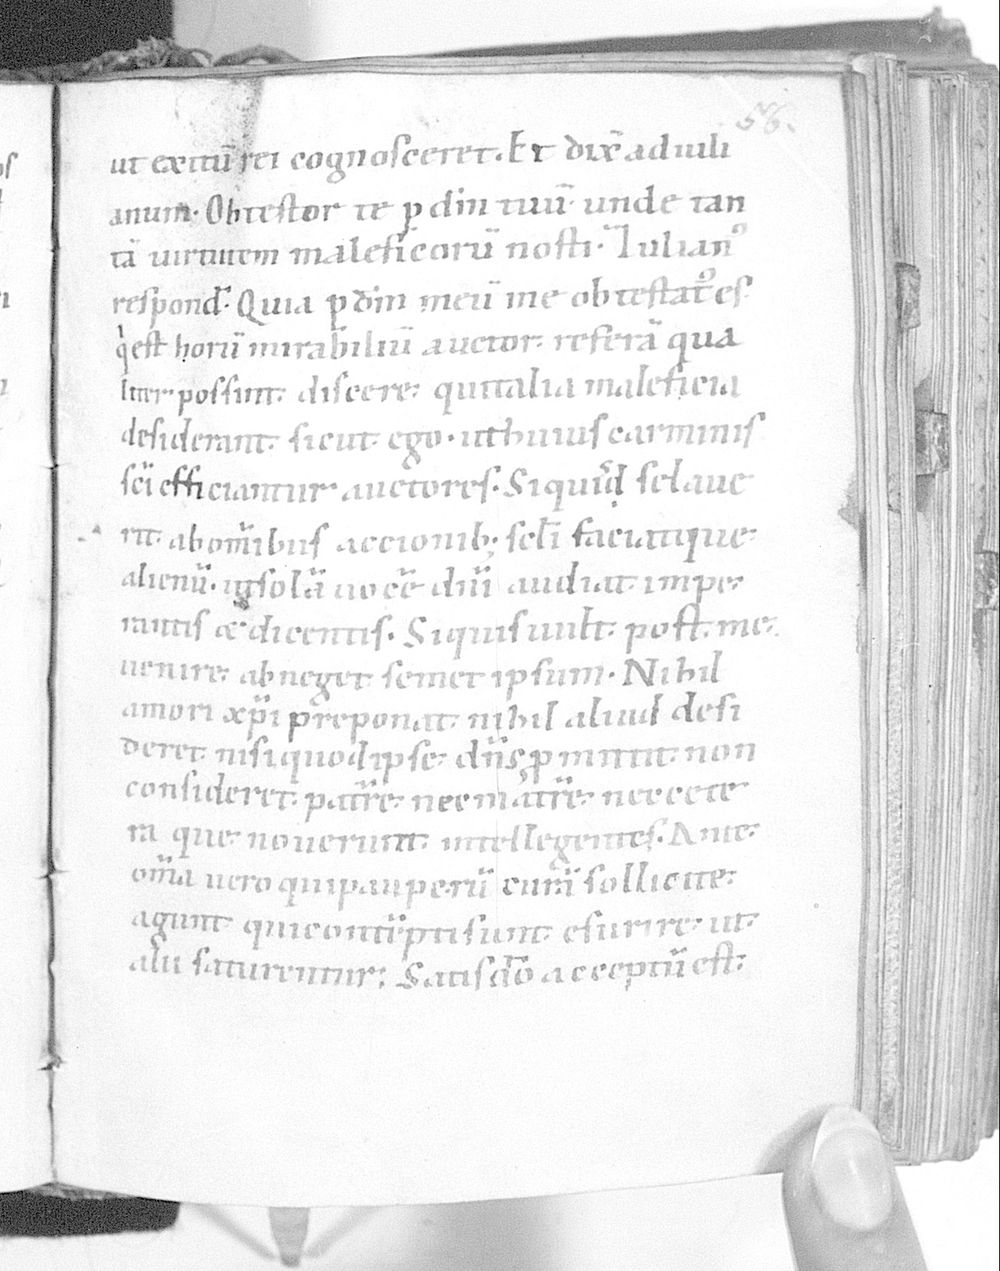 56.
ut exitū rei cognosceret. Et dix̄ ad iuli
anum. Obtestor te p dm̄ tuū unde tan
tā uirtutem maleficorū nosti. Iulianꝰ
respond̄. Quia p dm̄ meū me obtestatꝰ es
qͥ est horū mirabiliū auctor. referā qua
liter possint discere. qui talia maleficia
desiderant. sicut ego. ut huius carminis
sc̄i efficiantur auctores. Siquid se laue
rit ab om̄ibus accionib; scl̄i faciatque
alienū. ut solā uocē diū audiat impe
rantis & dicentis. Siquis uult post me
uenire. abneget semet ipsum. Nihil
amori xp̄i preponat. nihil aliud desi
deret nisi quod ipse dn̄s pmittit non
consideret patrē. nec matrē. nec cete
ra que nouerunt intellegentes. Ante
om̄a uero qui pauperū curā sollicite
agunt qui contēpti sunt esurire. ut
alii saturentur. Satis do acceptū est.